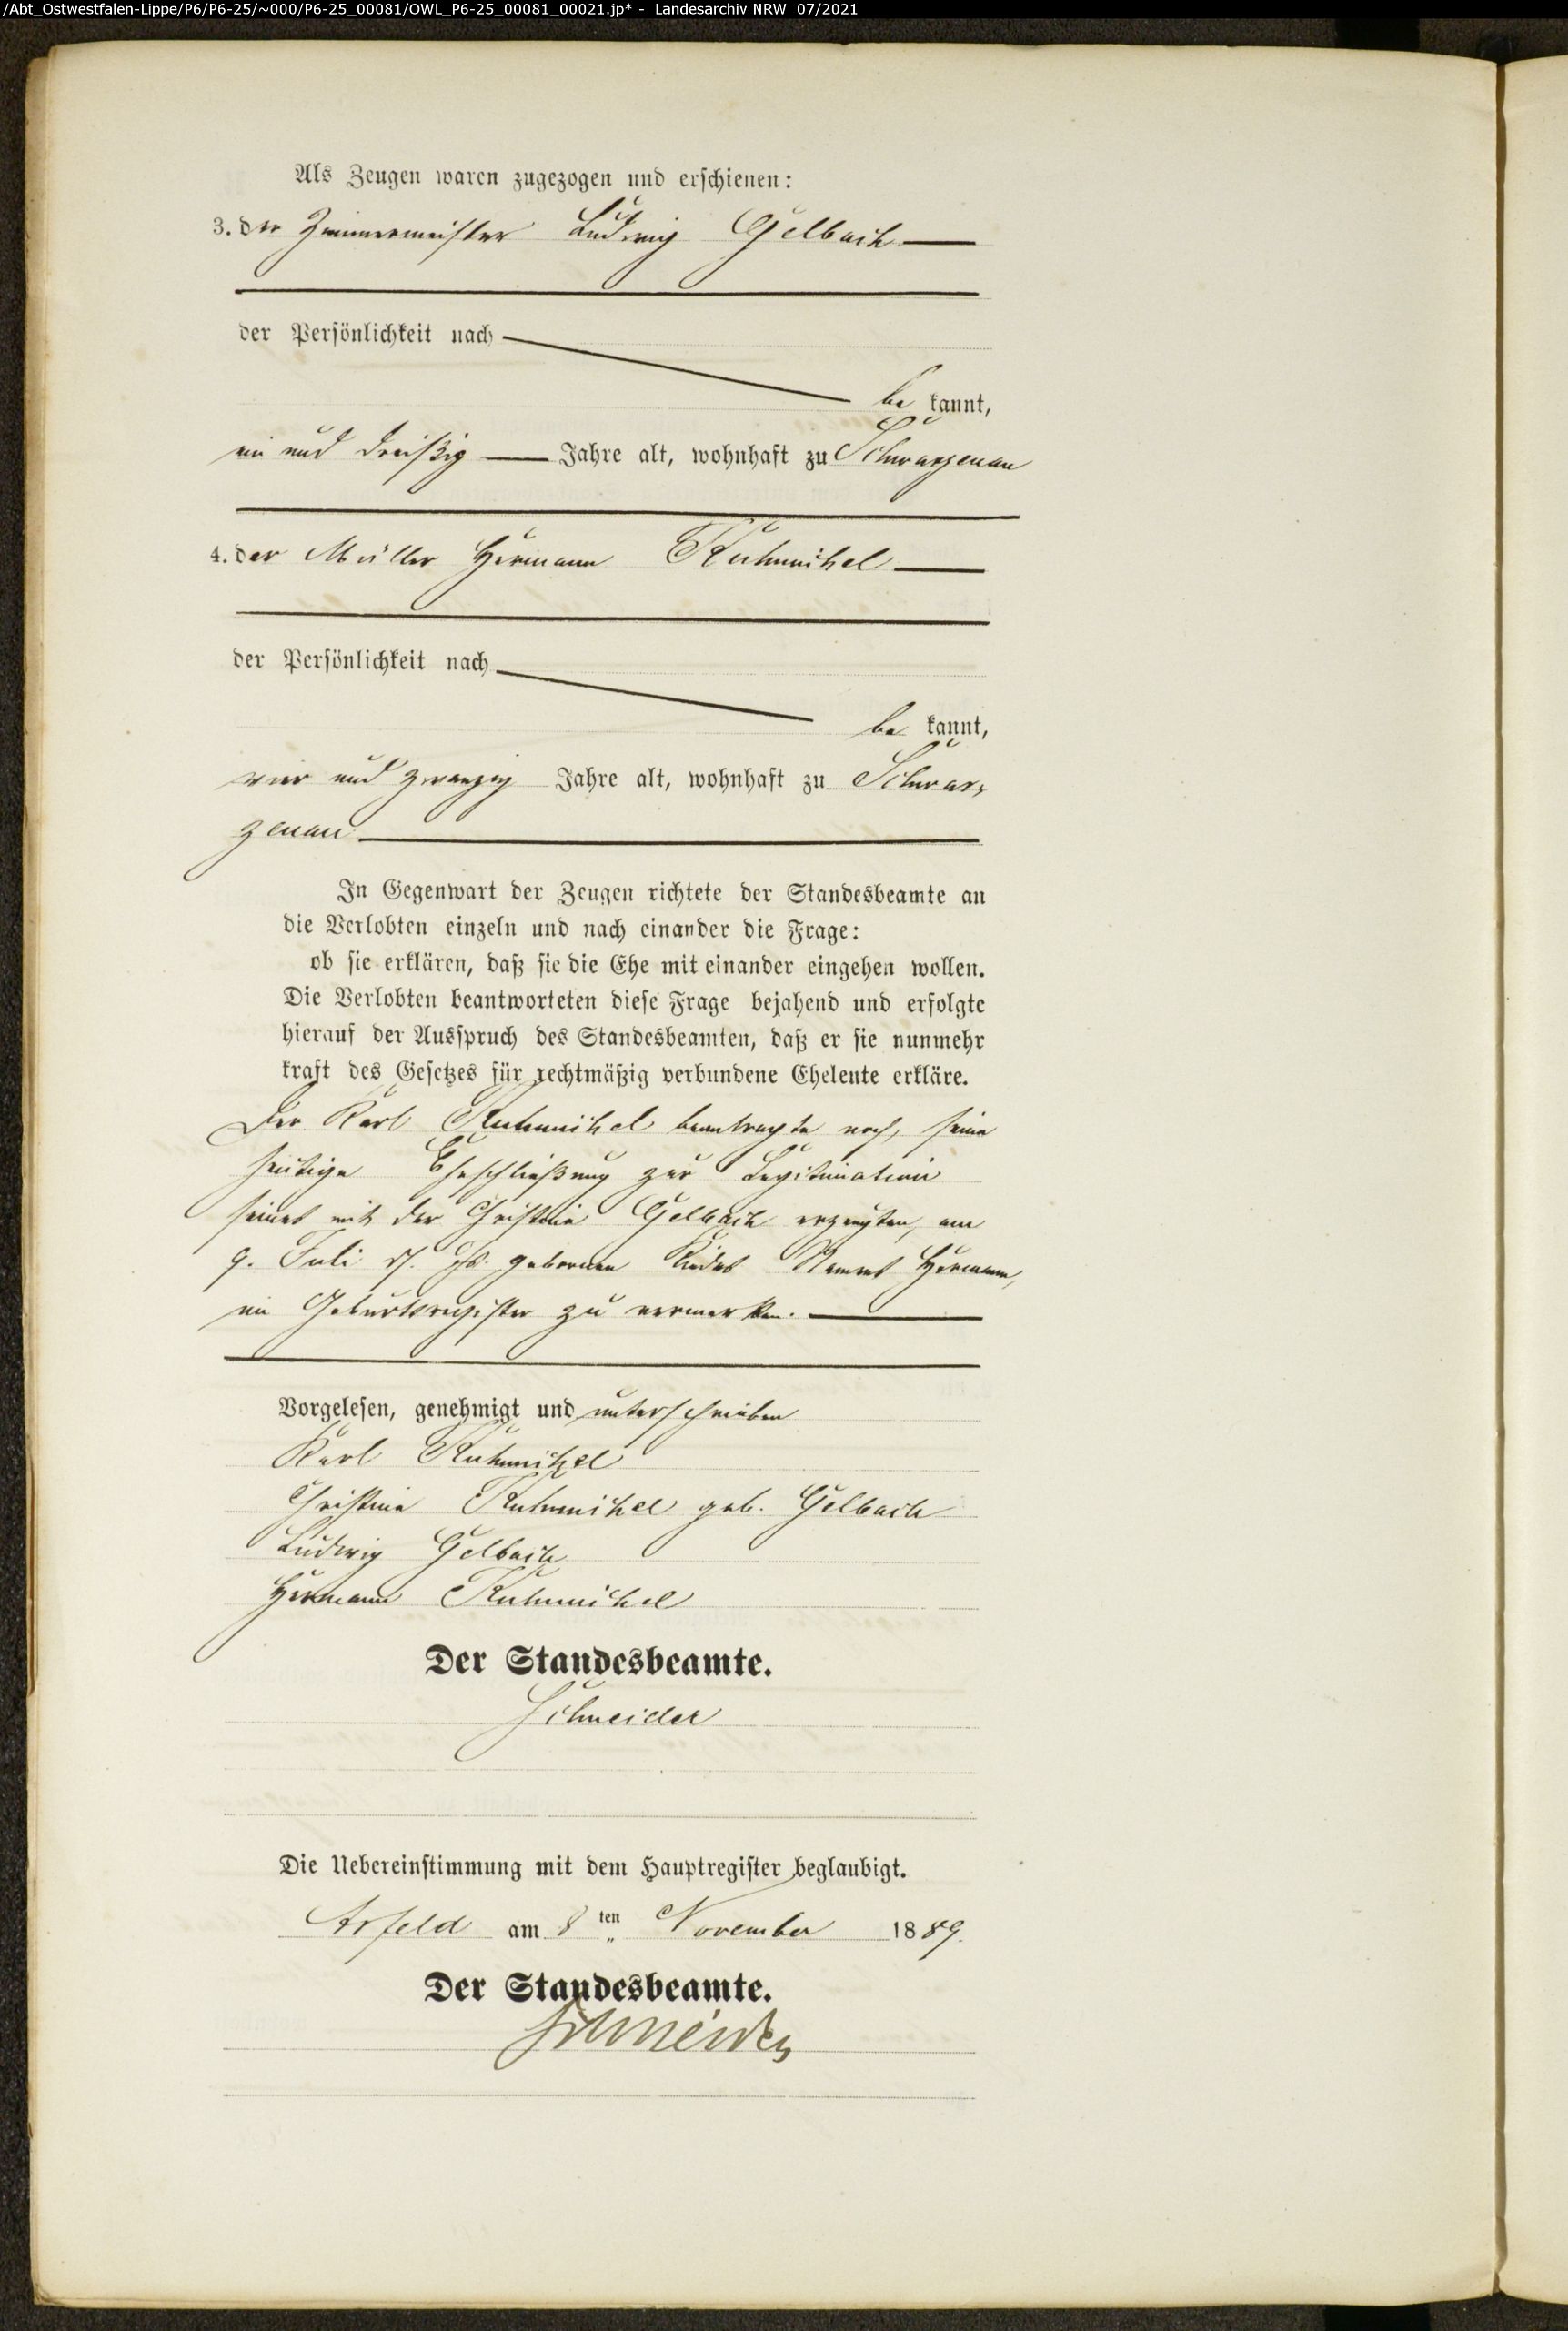 /Abt_Ostwestfalen-Lippe/P6/P6-25/~000/P6-25_00081/OWL_P6-25_00081_00021.jp* - Landesarchiv NRW 07/2021
Als Zeugen waren zugezogen und erschienen:
3. der Zimmermeister Ludwig Gelbach
der Persönlichkeit nach
be kannt,
ein und dreißig Jahre alt, wohnhaft zu Schwarzenau
4. der Müller Hermann Kuhmichel
der Persönlichkeit nach
be kannt,
vier und zwanzig Jahre alt, wohnhaft zu Schwar-
zenau
In Gegenwart der Zeugen richtete der Standesbeamte an
die Verlobten einzeln und nach einander die Frage:
ob sie erklären, daß sie die Ehe mit einander eingehen wollen.
Die Verlobten beantworteten diese Frage bejahend und erfolgte
hierauf der Ausspruch des Standesbeamten, daß er sie nunmehr
kraft des Gesetzes für rechtmäßig verbundene Eheleute erkläre.
Der Karl Kuhmichel beantragte noch, seine
heutige Eheschließung zur Legitimation
seines mit der Christine Gelbach erzeugten, am
9. Juli d. Js. geborenen Kindes Namens Hermann,
im Geburtsregister zu vermerken.
Vorgelesen, genehmigt und unterschrieben
Karl Kuhmichel
Christine Kuhmichel geb. Gelbach
Ludwig Gelbach
Hermann Kuhmichel
Der Standesbeamte.
Schneider
Die Uebereinstimmung mit dem Hauptregister beglaubigt.
Arfeld am 8 ten November 1889.
Der Standesbeamte.
Schneider